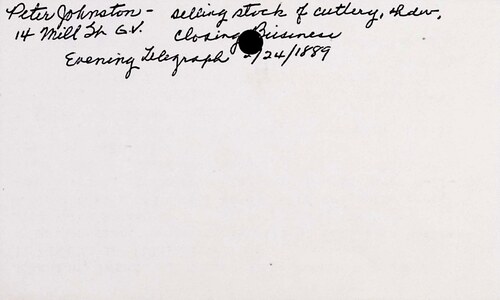 Peter Johnston - selling stock of cutlery, & hdw,
14 Mill St G.V. closing Business
Evening Telegraph /24/1889